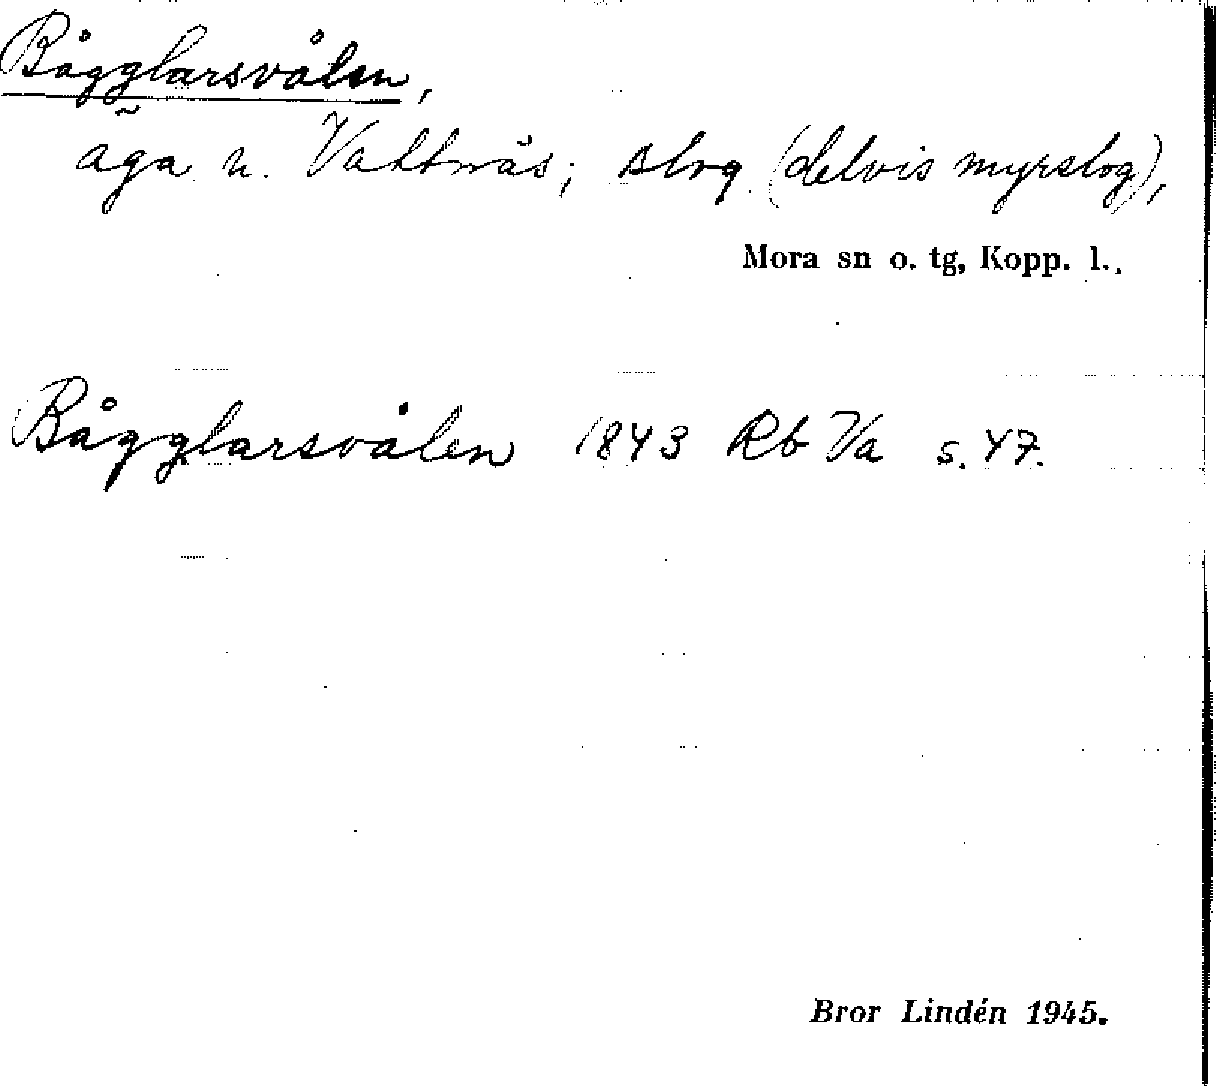 Bågglarsvålen,
äga u. Vattnäs; slog (delvis myrslog),
Mora sn o. tg, Kopp. l.,
Bågglarsvålen 1843 Rb Va s. 47.
Bror Lindén 1945.